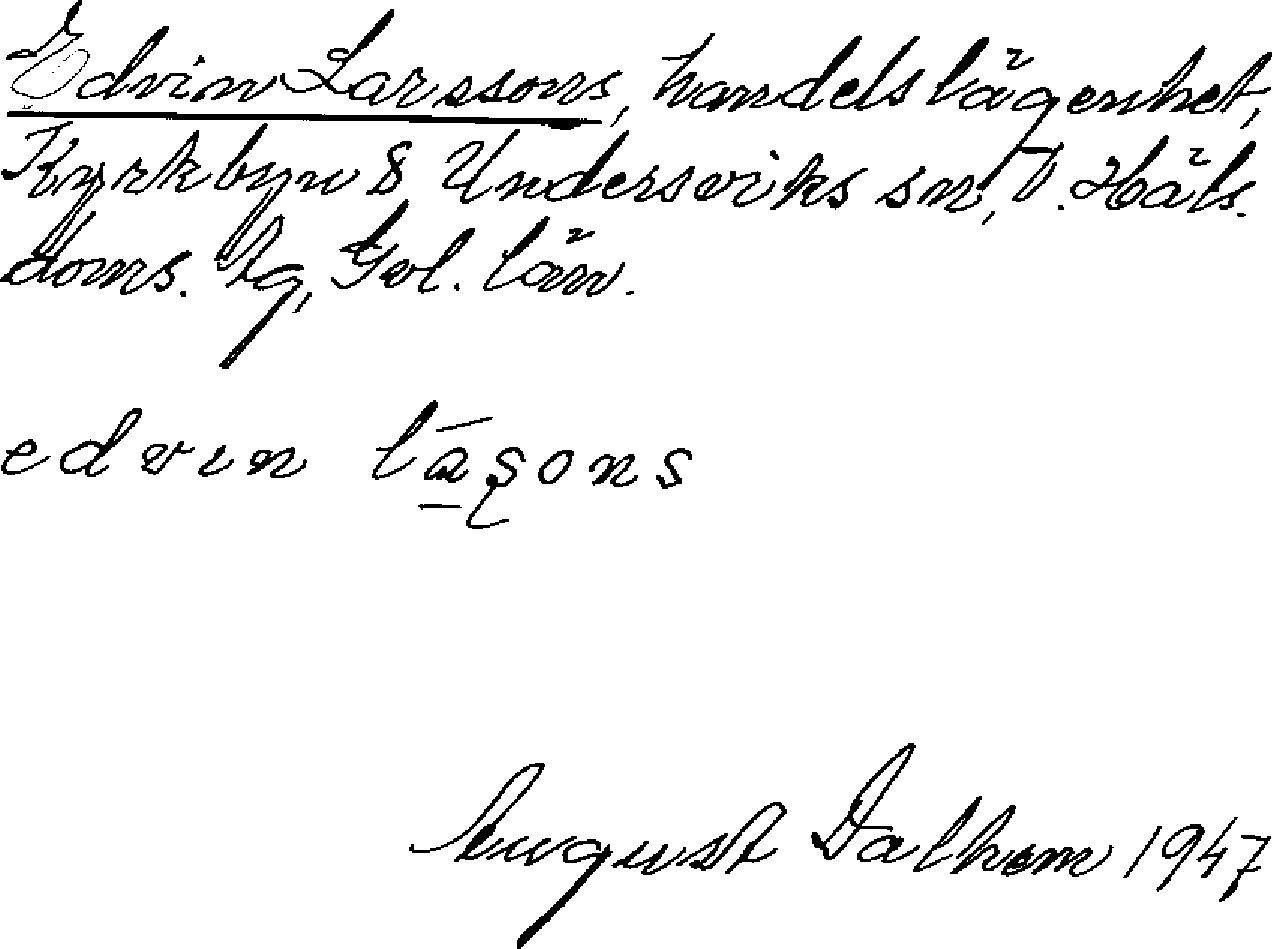 Edvin Larssons, handelslägenhet,
Kyrkbyn 8 Undersviks sn, V. Häls.
doms. tg, Gvl. län.
edvin lāsons
August Dalhem 1947